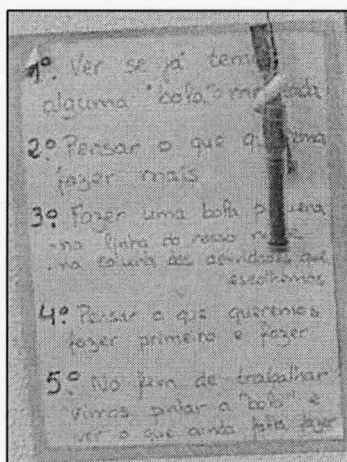 1º. Ver se já tem
alguma "bola"
2º. Pensar o que
fazer mais
3º. Fazer uma bola pequena
- na linha do nosso nome
- na coluna das actividades que
escolhemos
4º. Pensar o que queremos
fazer primeiro e fazer
5º. No fim de trabalhar
vimos pintar a "bola" e
ver o que ainda falta fazer